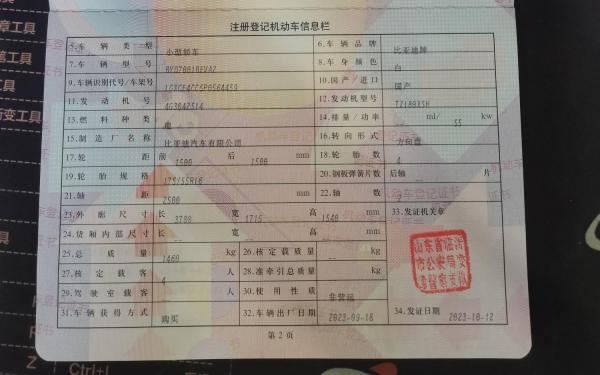 注册登记机动车信息栏
5.车辆类型 小型轿车 6.车辆品牌 比亚迪牌
7.车辆型号 8.车身颜色 白
9.车辆识别代号/车架号 10.国产/进口 国产
11.发动机号 12.发动机型号 TZ180XSH
13.燃料种类 电 14.排量/功率 ml/ 55 kw
15.制造厂名称 比亚迪汽车有限公司 16.转向形式 方向盘
17.轮距 前 1500 后 1500 mm 18.轮胎数 4
19.轮胎规格 175/55R16 20.钢板弹簧片数 后轴 -- 片
21.轴距 2500 mm 22.轴数 2
23.外廓尺寸 长 3780 宽 1715 高 1540 mm 33.发证机关章
24.货厢内部尺寸 长 -- 宽 -- 高 -- mm
25.总质量 1460 kg 26.核定载质量 -- kg
27.核定载客 4 人 28.准牵引总质量 -- kg
29.驾驶室载客 -- 人 30.使用性质 非营运
31.车辆获得方式 购买 32.车辆出厂日期 2023-09-18 34.发证日期 2023-10-12
第2页
章工具
工具
Z
Ctrl+I